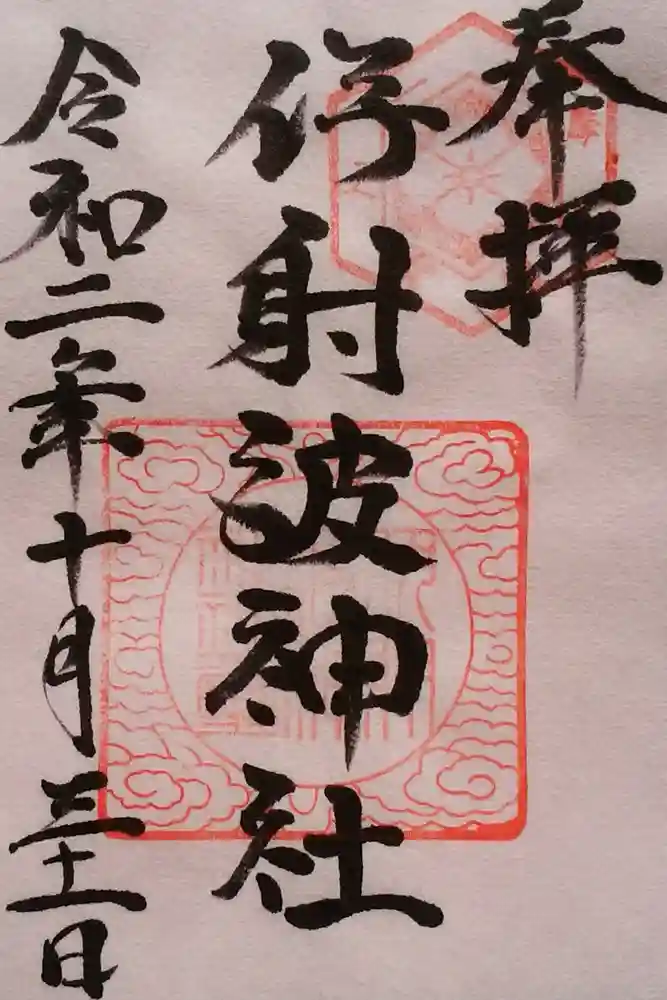 奉拝
伊射波神社
令和二年十月三十一日